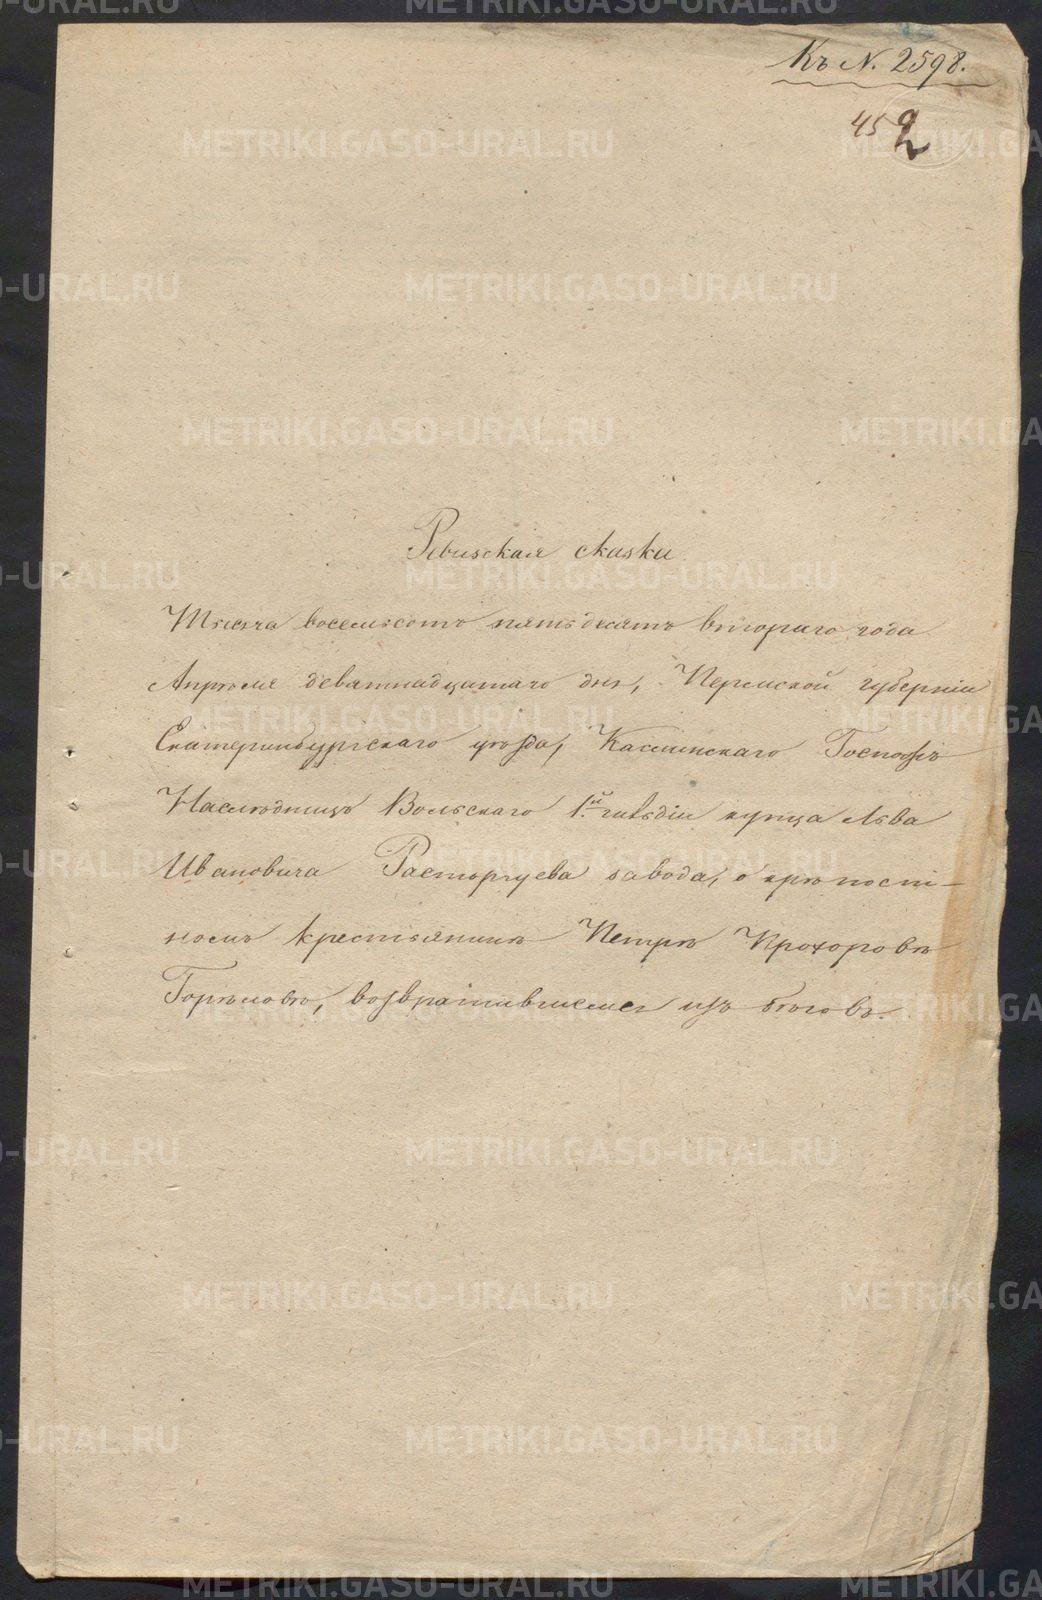 Къ N. 2598.
45 2
Ревизская сказка
Тысяча восемьсотъ пятьдесятъ втораго года
Апрѣля девятнадцатаго дня, Пермской губерніи
Екатеринбургскаго уѣзда, Каслинскаго Госпожъ
Наслѣдницъ Вольскаго 1.й гильдіи купца Льва
Ивановича Расторгуева завода, о крѣпост-
номъ крестьянинѣ Петрѣ Прохоровѣ
Горѣловѣ, возвратившемся изъ бѣговъ.
METRIKI.GASO-URAL.RU